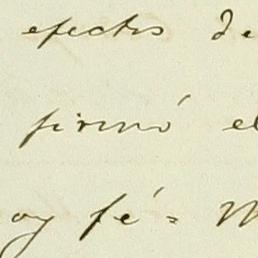 efectos de
firmó el
oy fé= M